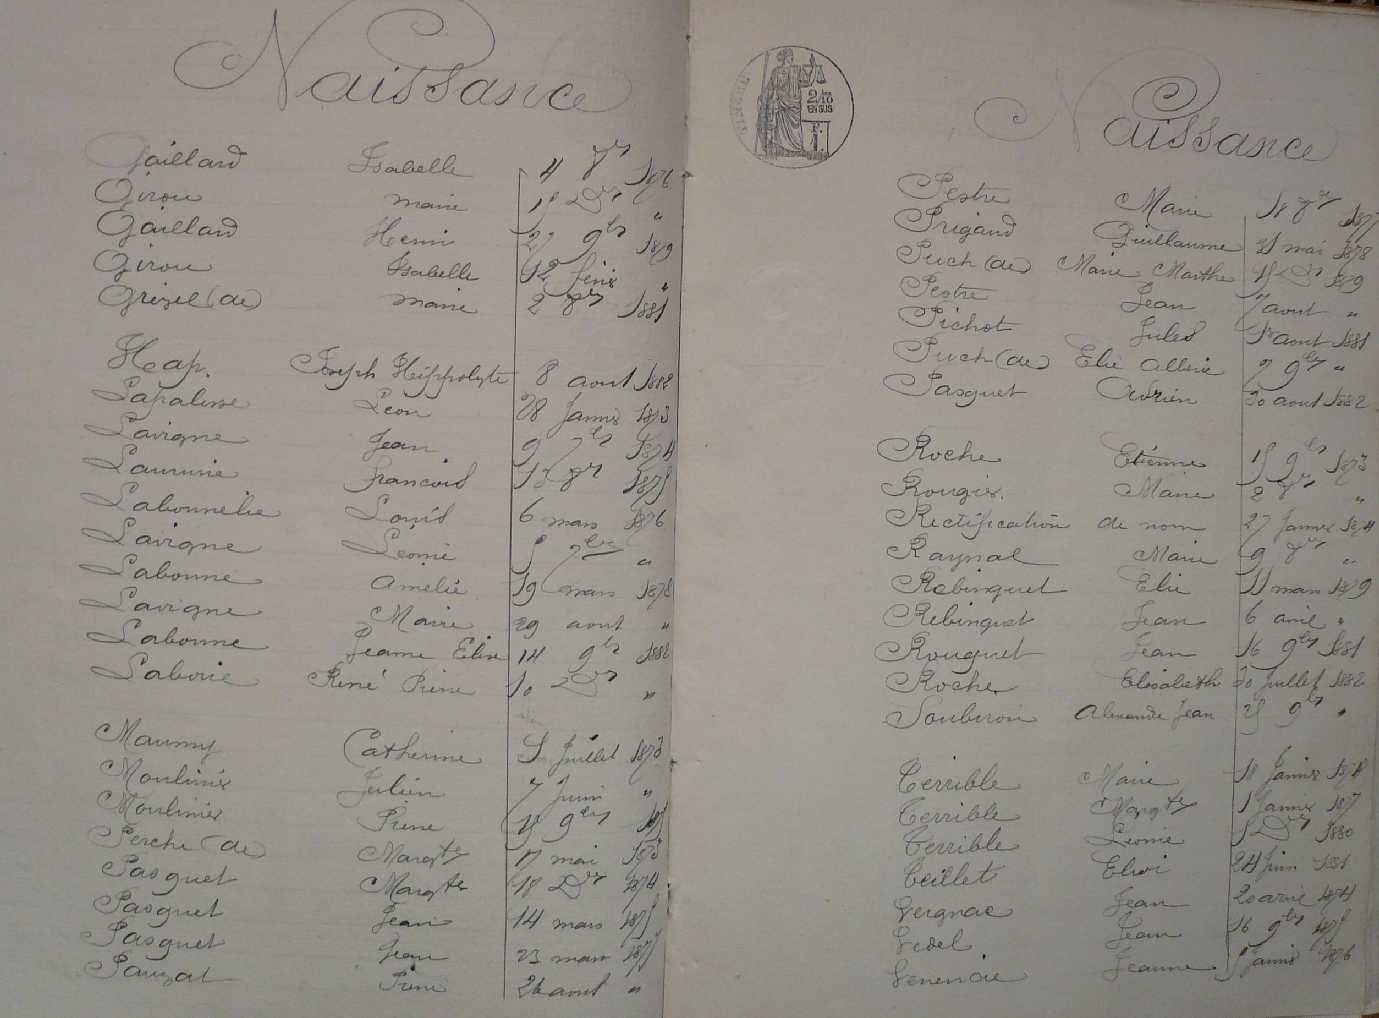 Naissance
Gaillard Isabelle 4 8bre 1876
Girou marie 15 Dbre "
Gaillard Henri 27 9bre 1879
Girou Isabelle 12 février "
Grezel (de) marie 2 8bre 1881
Heap. Joseph Hippolyte 8 aout
Lapalisse Léon 28 Janvier 1873
Lavigne Jean 9 7bre 1874
Laurière François 8bre 1875
Labonnelie Louis 6 mars 1876
Lavigne Léonie 5 7bre "
Labonne Amélie 19 mars 1878
Lavigne Marie 29 aout "
Labonne Jeanne Elise 14 9bre 1882
Laborie René Pierre 10 Dbre "
Maumy Catherine Juillet 1873
Moulinier Julien 7 Juin "
Moulinier Pierre 9bre
Perche (de) Margte 17 mai 1873
Pasquet Margte 18 Dbre 1874
Pasquet Jean 14 mars 1875
Pasquet Jean 23 mars 1877
Pauzat Pierre 26 aout "
TIMBRE
2/10
EN SUS
Naissance
Pestre Marie 18 8bre 1877
Prigaud Guillaume 21 mai 1878
Puch (de) Marie Marthe 15 Dbre 1879
Pestre Jean 7 aout "
Pichot Jules 1er aout 1881
Puch (de) Elie 9bre "
Pasquet Adrien 30 aout 1882
Roche Etienne 15 9bre 1873
Rougier. Marie 2 8bre "
Rectification de nom 27 Janvier 1874
Raynal Marie 9 8bre "
Rabinguet Elie 11 mars 1879
Rebinguet Jean 6 avril "
Rouquet Jean 16 9bre 1881
Roche Elisabeth 30 Juillet 1882
Soubiran Alexandre Jean 25 9bre "
Terrible Marie 18 Janvier
Terrible Margte 1 Janvier
Terrible Léonie 5 Dbre 1880
Teillet Eloi 24 Juin 1881
Vergnac Jean 20 avril 1874
Vedel Jean 16 9bre 1875
Jeanne Janvier 1876